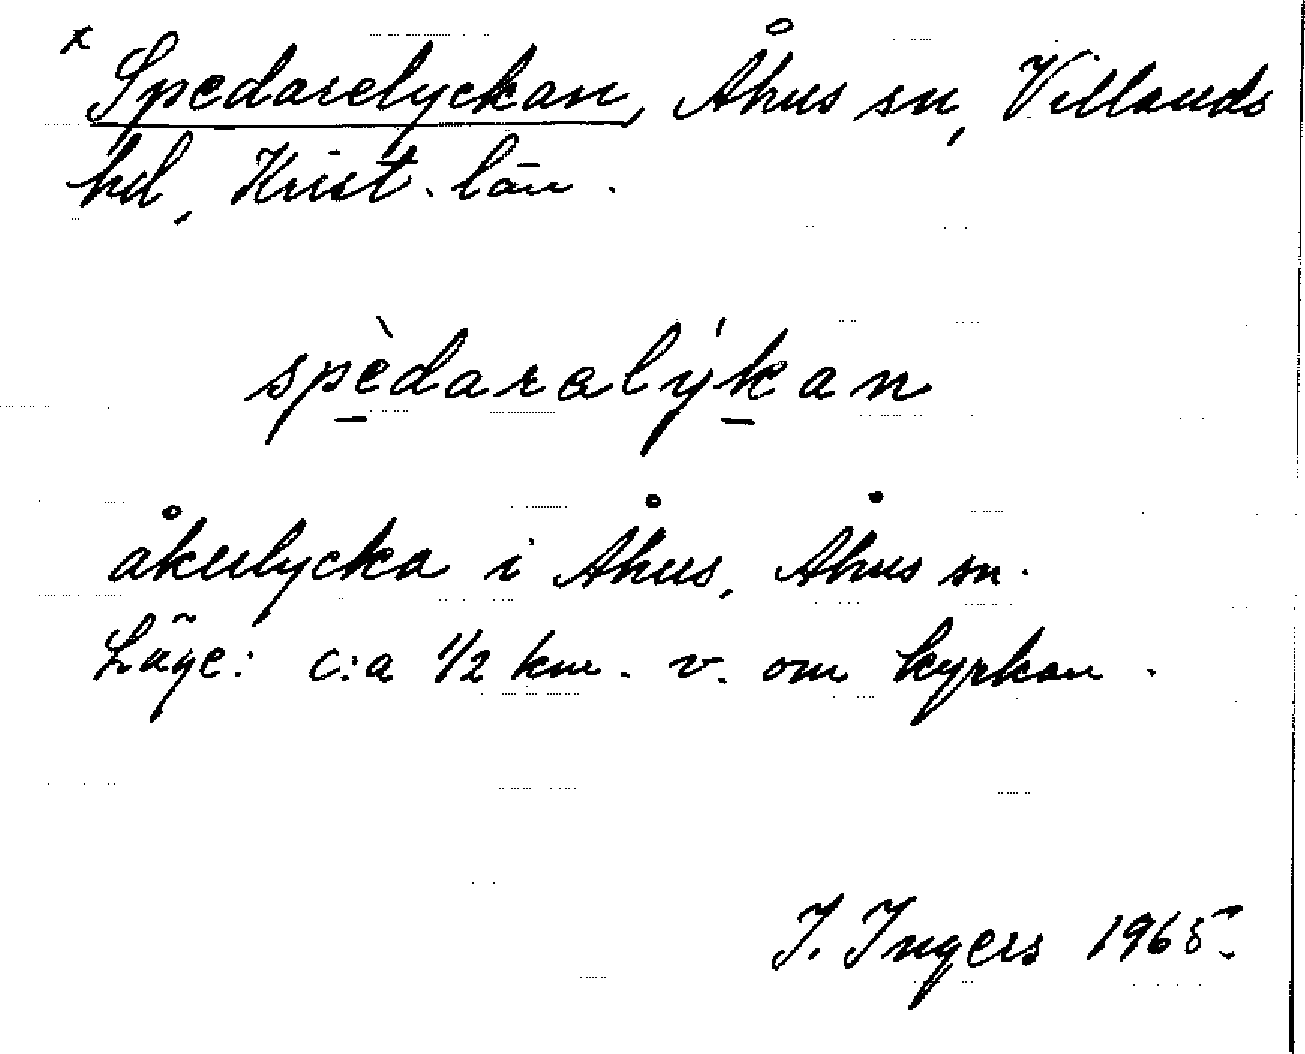 x Spedarelyckan, Åhus sn, Villands
hd, Krist. län.
spèdaralýkan
åkerlycka i Åhus, Åhus sn.
Läge: c:a 1/2 km. v. om kyrkan.
I. Ingers 1965.